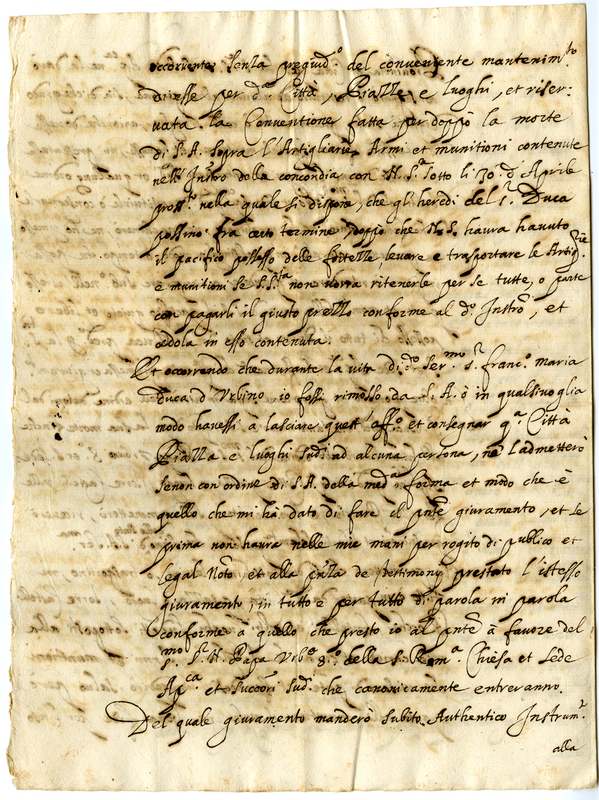 occorrente senza pregiud.o del conveniente mantenim.to
di esse per d.a Città, Piazze e luoghi, et riser:
vata la Conventione fatta per doppò la morte
di S.A. sopra l'Artigliarie, Armi et munitioni contenute
nell'Instro della concordia con N. S.re sotto li 30 d'Aprile
pross.o nella quale si dispone, che gl'heredi del S.r Duca
possino frà certo termine, doppò che N.S. haura havuto
il pacifico possesso delle fortezze levare e trasportare le Artig.rie
e munitioni se S.S.ta non vorrà ritenerle per se tutte, o parte
con pagarli il giusto prezzo conforme al d.o Instro, et
cedola in esso contenuta.
Et occorrendo che durante la vita di d.o Ser.mo S.r franc.o maria
Duca d'Urbino, io fossi rimosso da S.A. ò in qualsivoglia
modo havessi à lasciare quest'aff.o et consegnar q.a Città
Piazza e luoghi sud.i ad alcuna persona, nè l'admetterò
se non con ordine di S.A. della med.a forma et modo che è
quello che mi hà dato di fare il pnte giuramento, et se
prima non haura nelle mie mani per rogito di publico et
legal Noto. et alla pnza de testimonij prestato l'istesso
giuramento, in tutto e per tutto di parola in parola
conforme à quello che presto io al pnte à favore del
S.mo S.r N. Papa Urb.o 8.o della S. Rom.a Chiesa et Sede
Ap.ca et succori sud.i che canonicamente entreranno.
Del quale giuramento manderò subito Authentico Instrum.to
alla